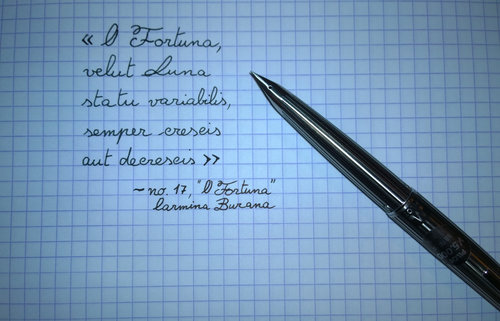 « O Fortuna,
velut Luna
statu variabilis,
semper crescis
aut decrescis »
~ no. 17, "O Fortuna"
Carmina Burana